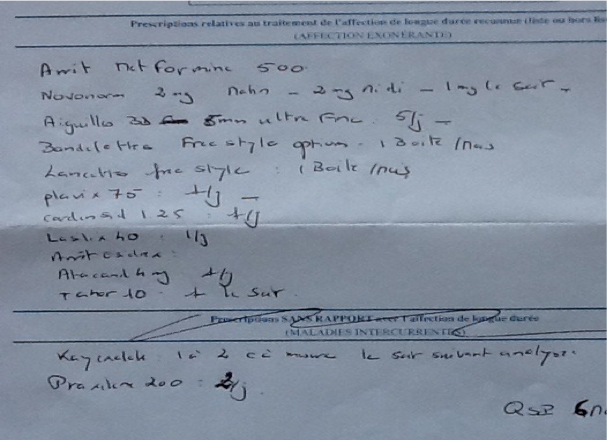 Prescriptions relatives au traitement de l'affection de longue durée reconnue (liste ou hors lis
(AFFECTION EXONÉRANTE)
Arrêt Metformine 500
Novonorm 2 mg Matin - 2 mg midi - 1 mg le soir -
Aiguilles 5mm ultra Fine 5/j -
Bandelettes Free style optium . 1 Boite / mois
Lancettes free style : 1 Boite / mois
plavix 75 : 1/j
cardensiel 1.25 : 1/j
Lasilix 40 : 1/j
Arrêt esidrex
Atacand 4 mg 1/j
Tahor 10 . 1 le soir
Prescriptions SANS RAPPORT avec l'affection de longue durée
(MALADIES INTERCURRENTES)
Kayexalate : 1 à 2 c à mesure le soir suivant analyse.
Praxilène 200 : 2/j
QSP 6 m